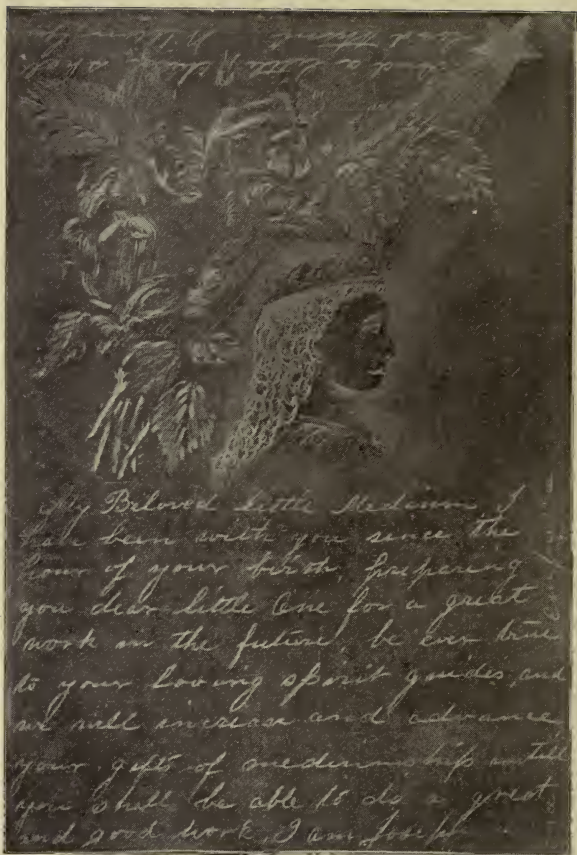 and a little child shall
lead them.
My Beloved Little Medium, I
have been with you since the
hour of your birth, preparing
you dear little One for a great
work in the future, be ever true
to your loving spirit guides, and
we will increase and advance
your gifts of mediumship until
you shall be able to do a great
and good work, I am Joseph